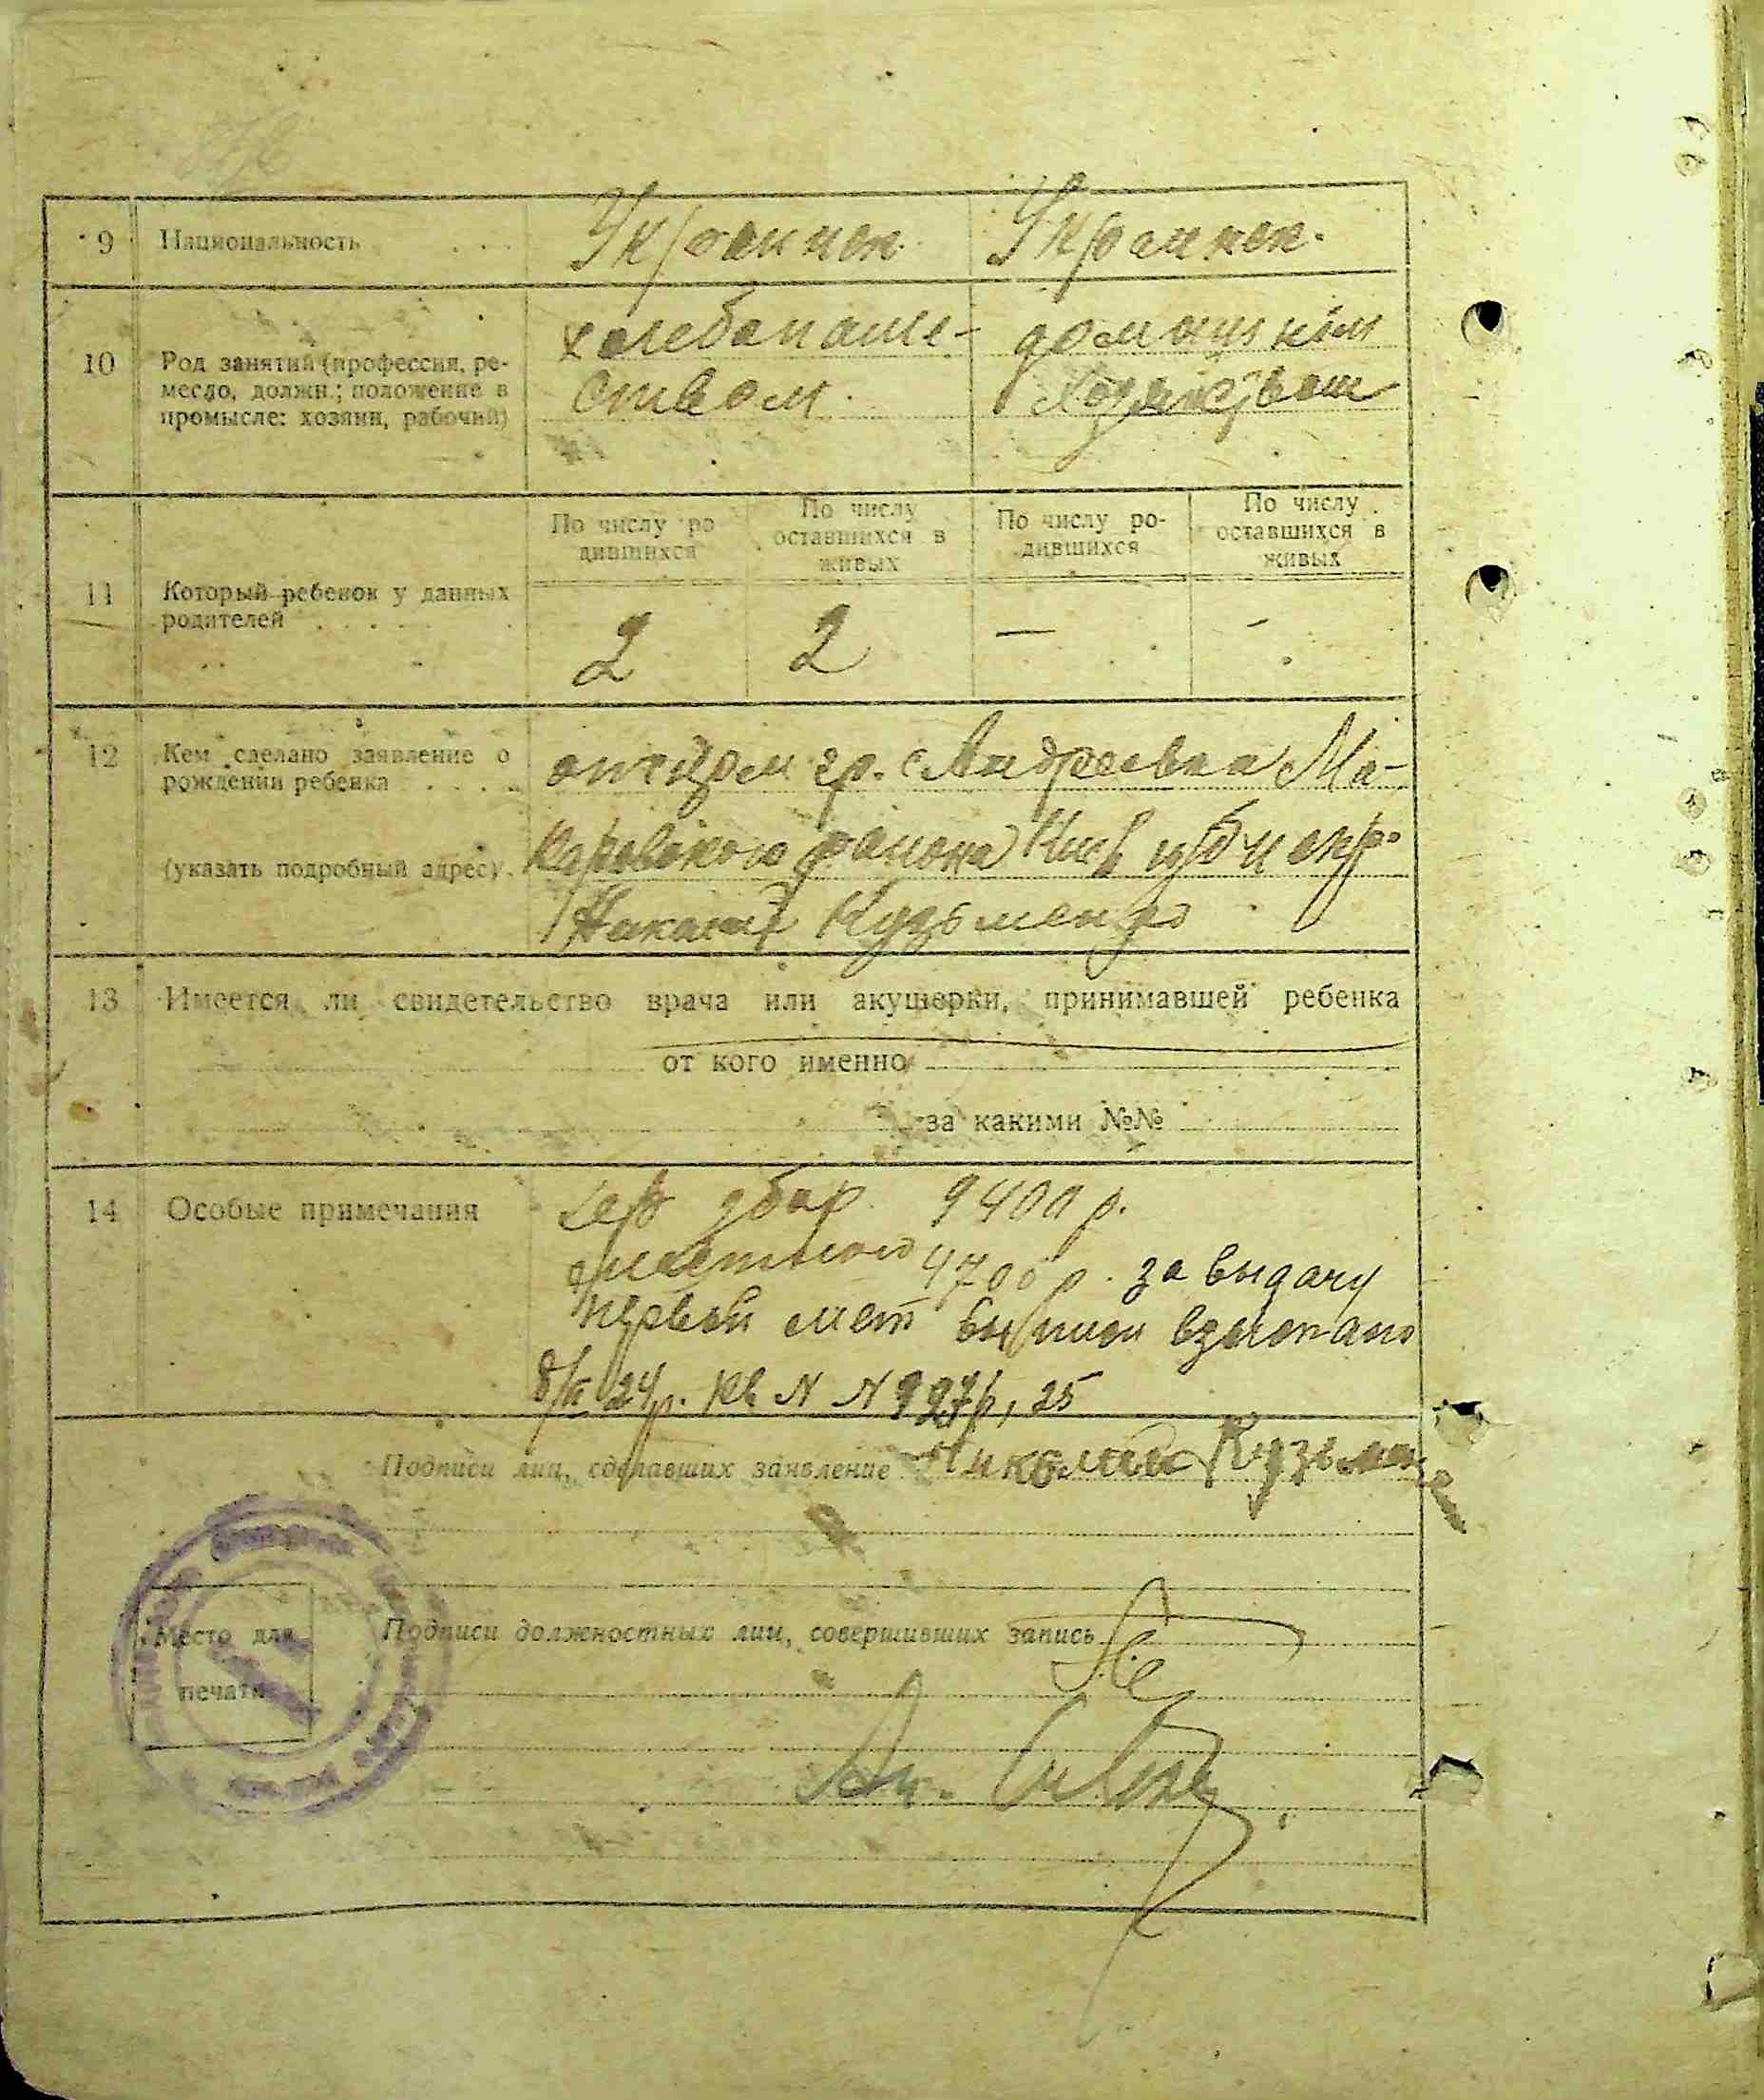 9 Национальность Украинец Украинец.
10 Род занятий (профессия, ремесло, должн.; положение в промысле: хозяин, рабочий)
хлебопаше-
ством.
домашним
хозяйством
По числу ро
дившихся
По числу
оставшихся в
живых
По числу ро-
дившихся
По числу
оставшихся в
живых
11 Который ребенок у данных
родителей
2 2 — -
12 Кем сделано заявление о
рождении ребенка
(указать подробный адрес)
отцом гр. с Андреевки Ма-
каровского района Киев губ и окр.
Кузьменко
13 Имеется ли свидетельство врача или акушерки, принимавшей ребенка
от кого именно
за какими №№
14 Особые примечания
9400 р.
местного 4700 р. за выдачу
первой выписи взыскано
24р. Кв N N
Подписи лиц, сделавших заявление Николай Кузьменко
Место для
печати
Подписи должностных лиц, совершивших запись